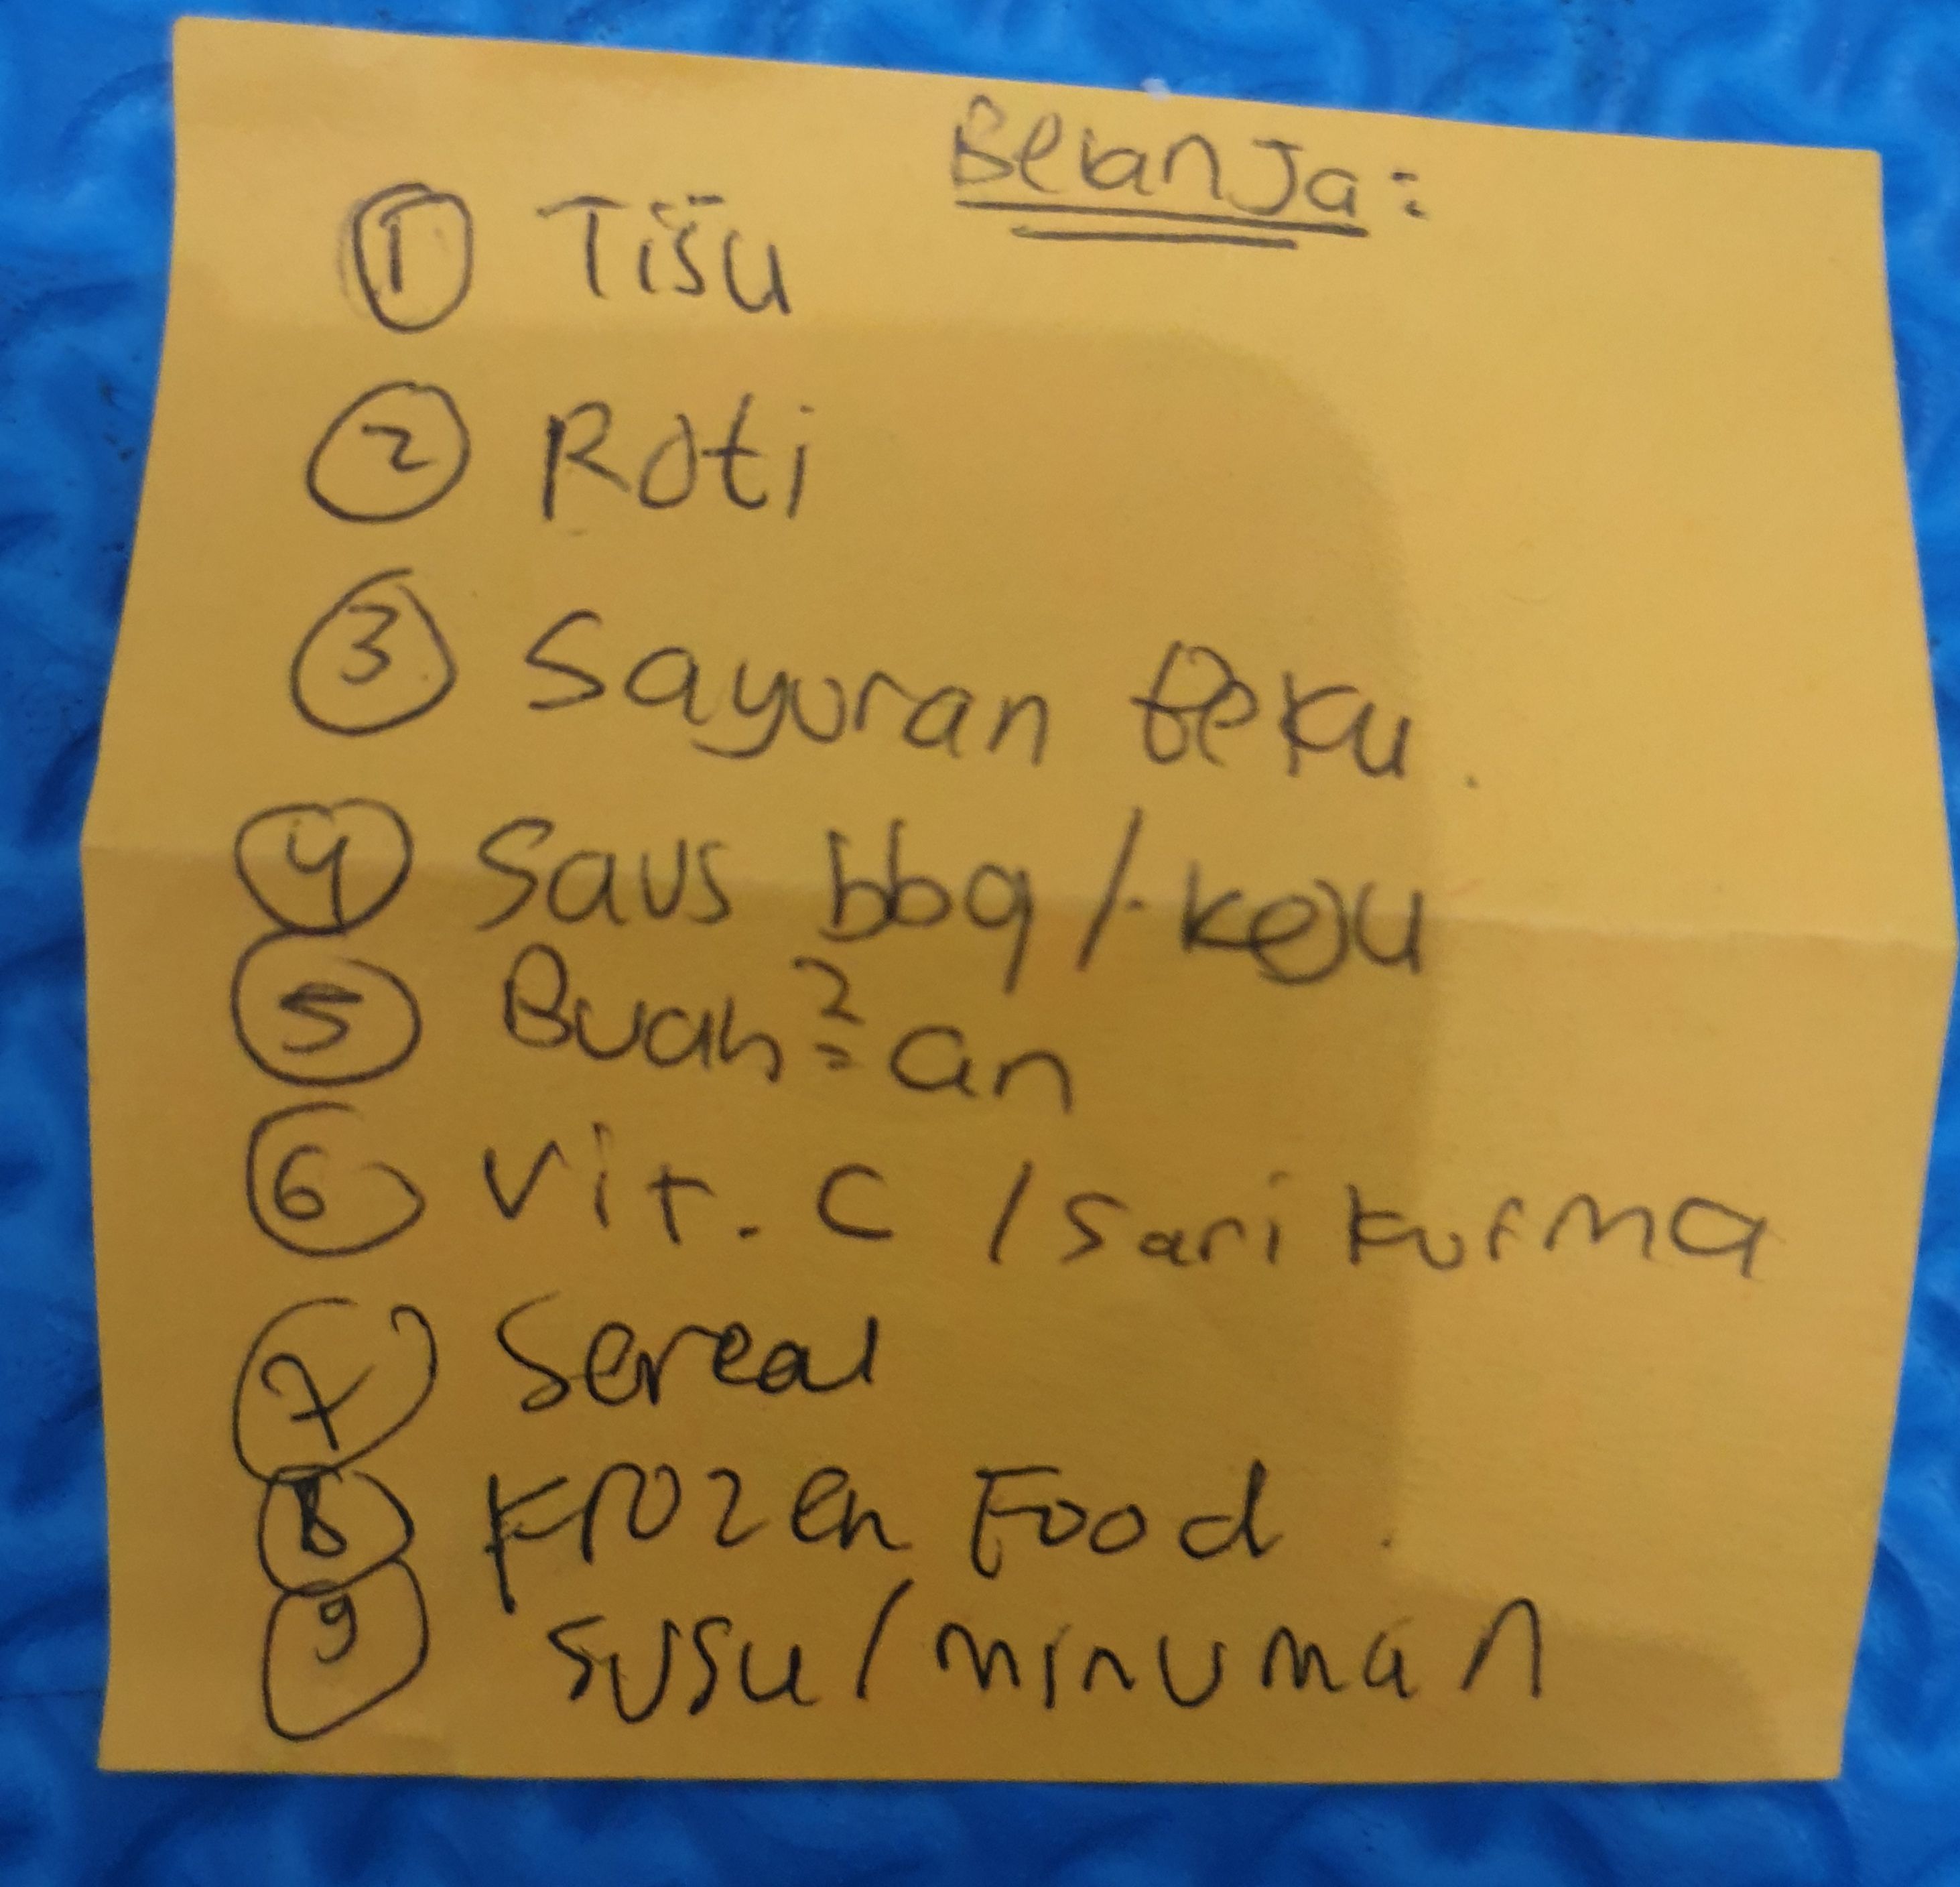 Belanja:
① Tisu
② Roti
③ Sayuran Beku.
④ Saus bbq / keju
⑤ Buah²an
⑥ Vit. C / Sari kurma
⑦ Sereal
⑧ Frozen Food.
⑨ susu / minuman